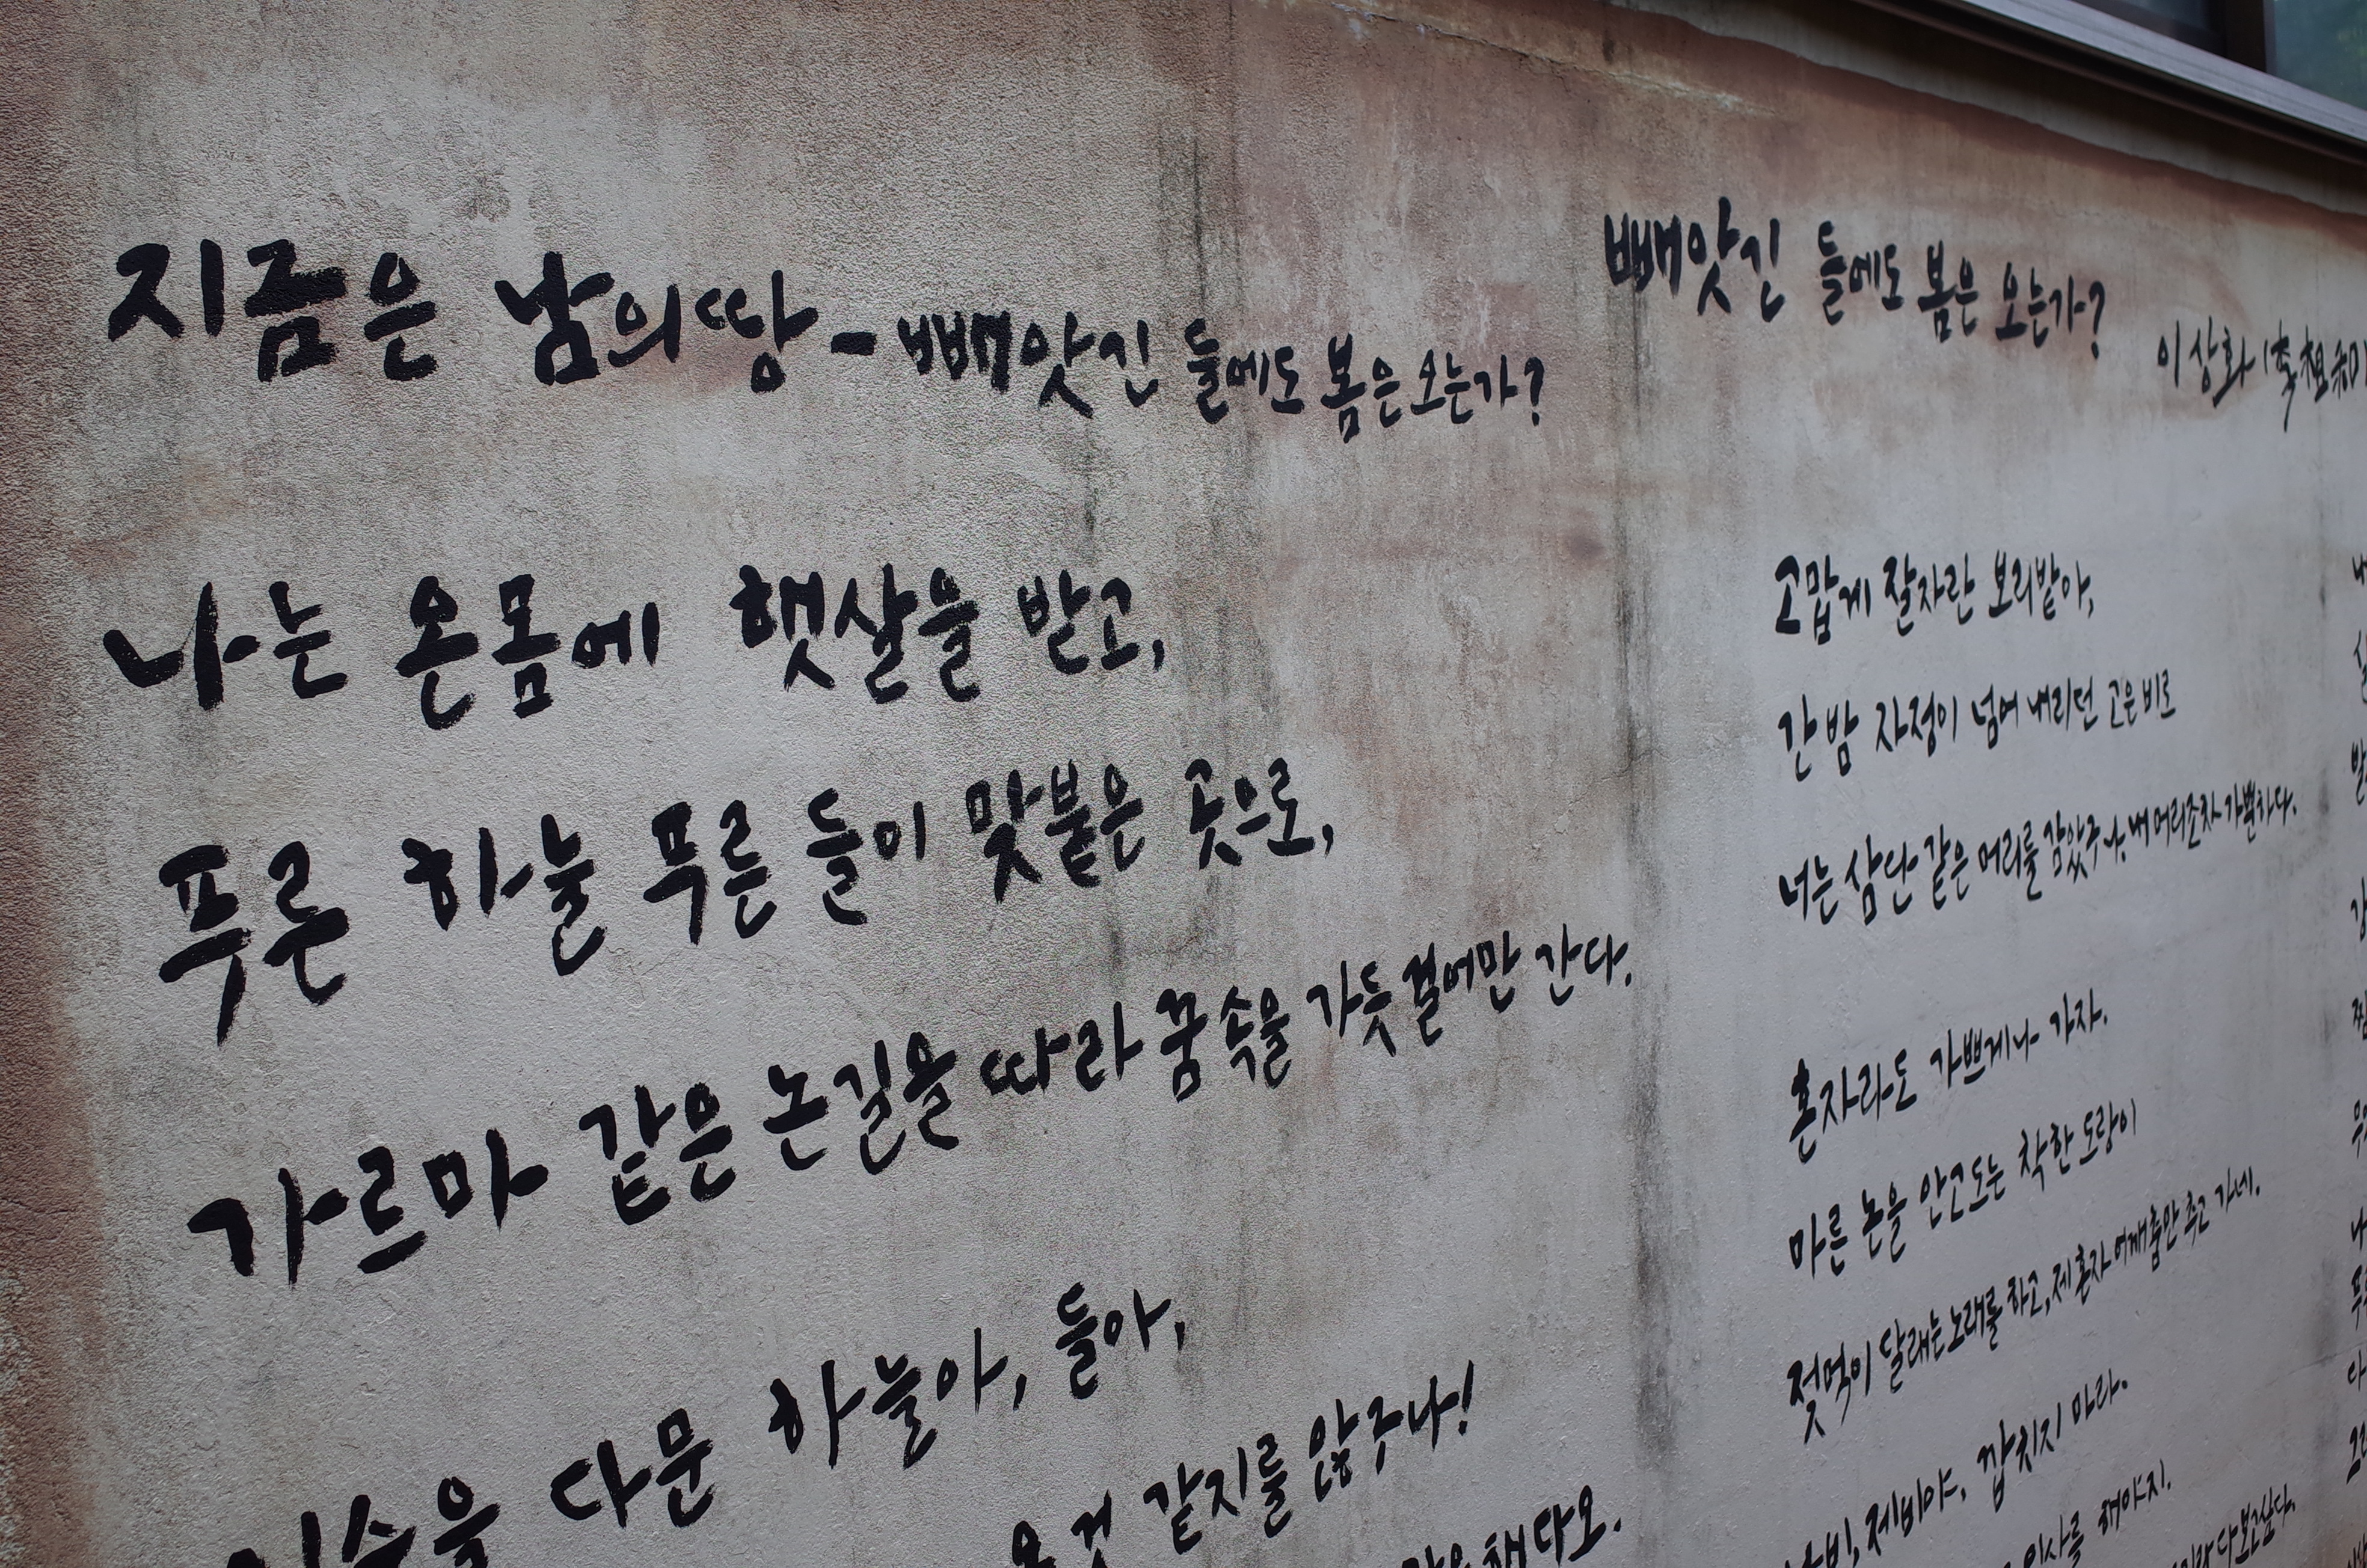 지금은 남의 땅 - 빼앗긴 들에도 봄은 오는가?
나는 온몸에 햇살을 받고,
푸른 하늘 푸른 들이 맞붙은 곳으로,
가르마 같은 논길을 따라 꿈속을 가듯 걸어만 간다.
입술을 다문 하늘아, 들아,
온 것 같지를 않구나!
해다오.
빼앗긴 들에도 봄은 오는가?
이상화 (李相和)
고맙게 잘 자란 보리밭아,
간밤 자정이 넘어 내리던 고은 비로
너는 삼단 같은 머리를 감았구나. 내 머리조차 가뿐하다.
혼자라도 가쁘게나 가자.
마른 논을 안고 도는 착한 도랑이
젖먹이 달래는 노래를 하고, 제 혼자 어깨춤만 추고 가네.
나비, 제비야, 깝치지 마라.
인사를 해야지.
다 보고 싶다.